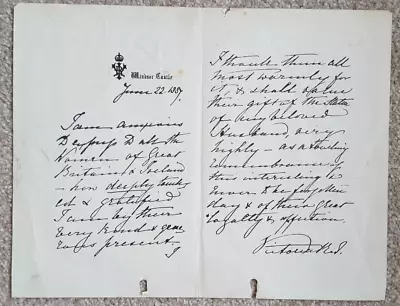 Windsor Castle
June 22. 1887.
I am anxious
to express to all the
Women of Great
Britain & Ireland
– how deeply touch
ed & gratified
I am by their
very kind & gene
rous present,
I thank them all
most warmly for
it, & shall value
their gift of the Statue
of my beloved
Husband, very
highly – as a touching
remembrance of
this interesting &
never to be forgotten
day & of their great
loyalty & affection.
Victoria R.I.